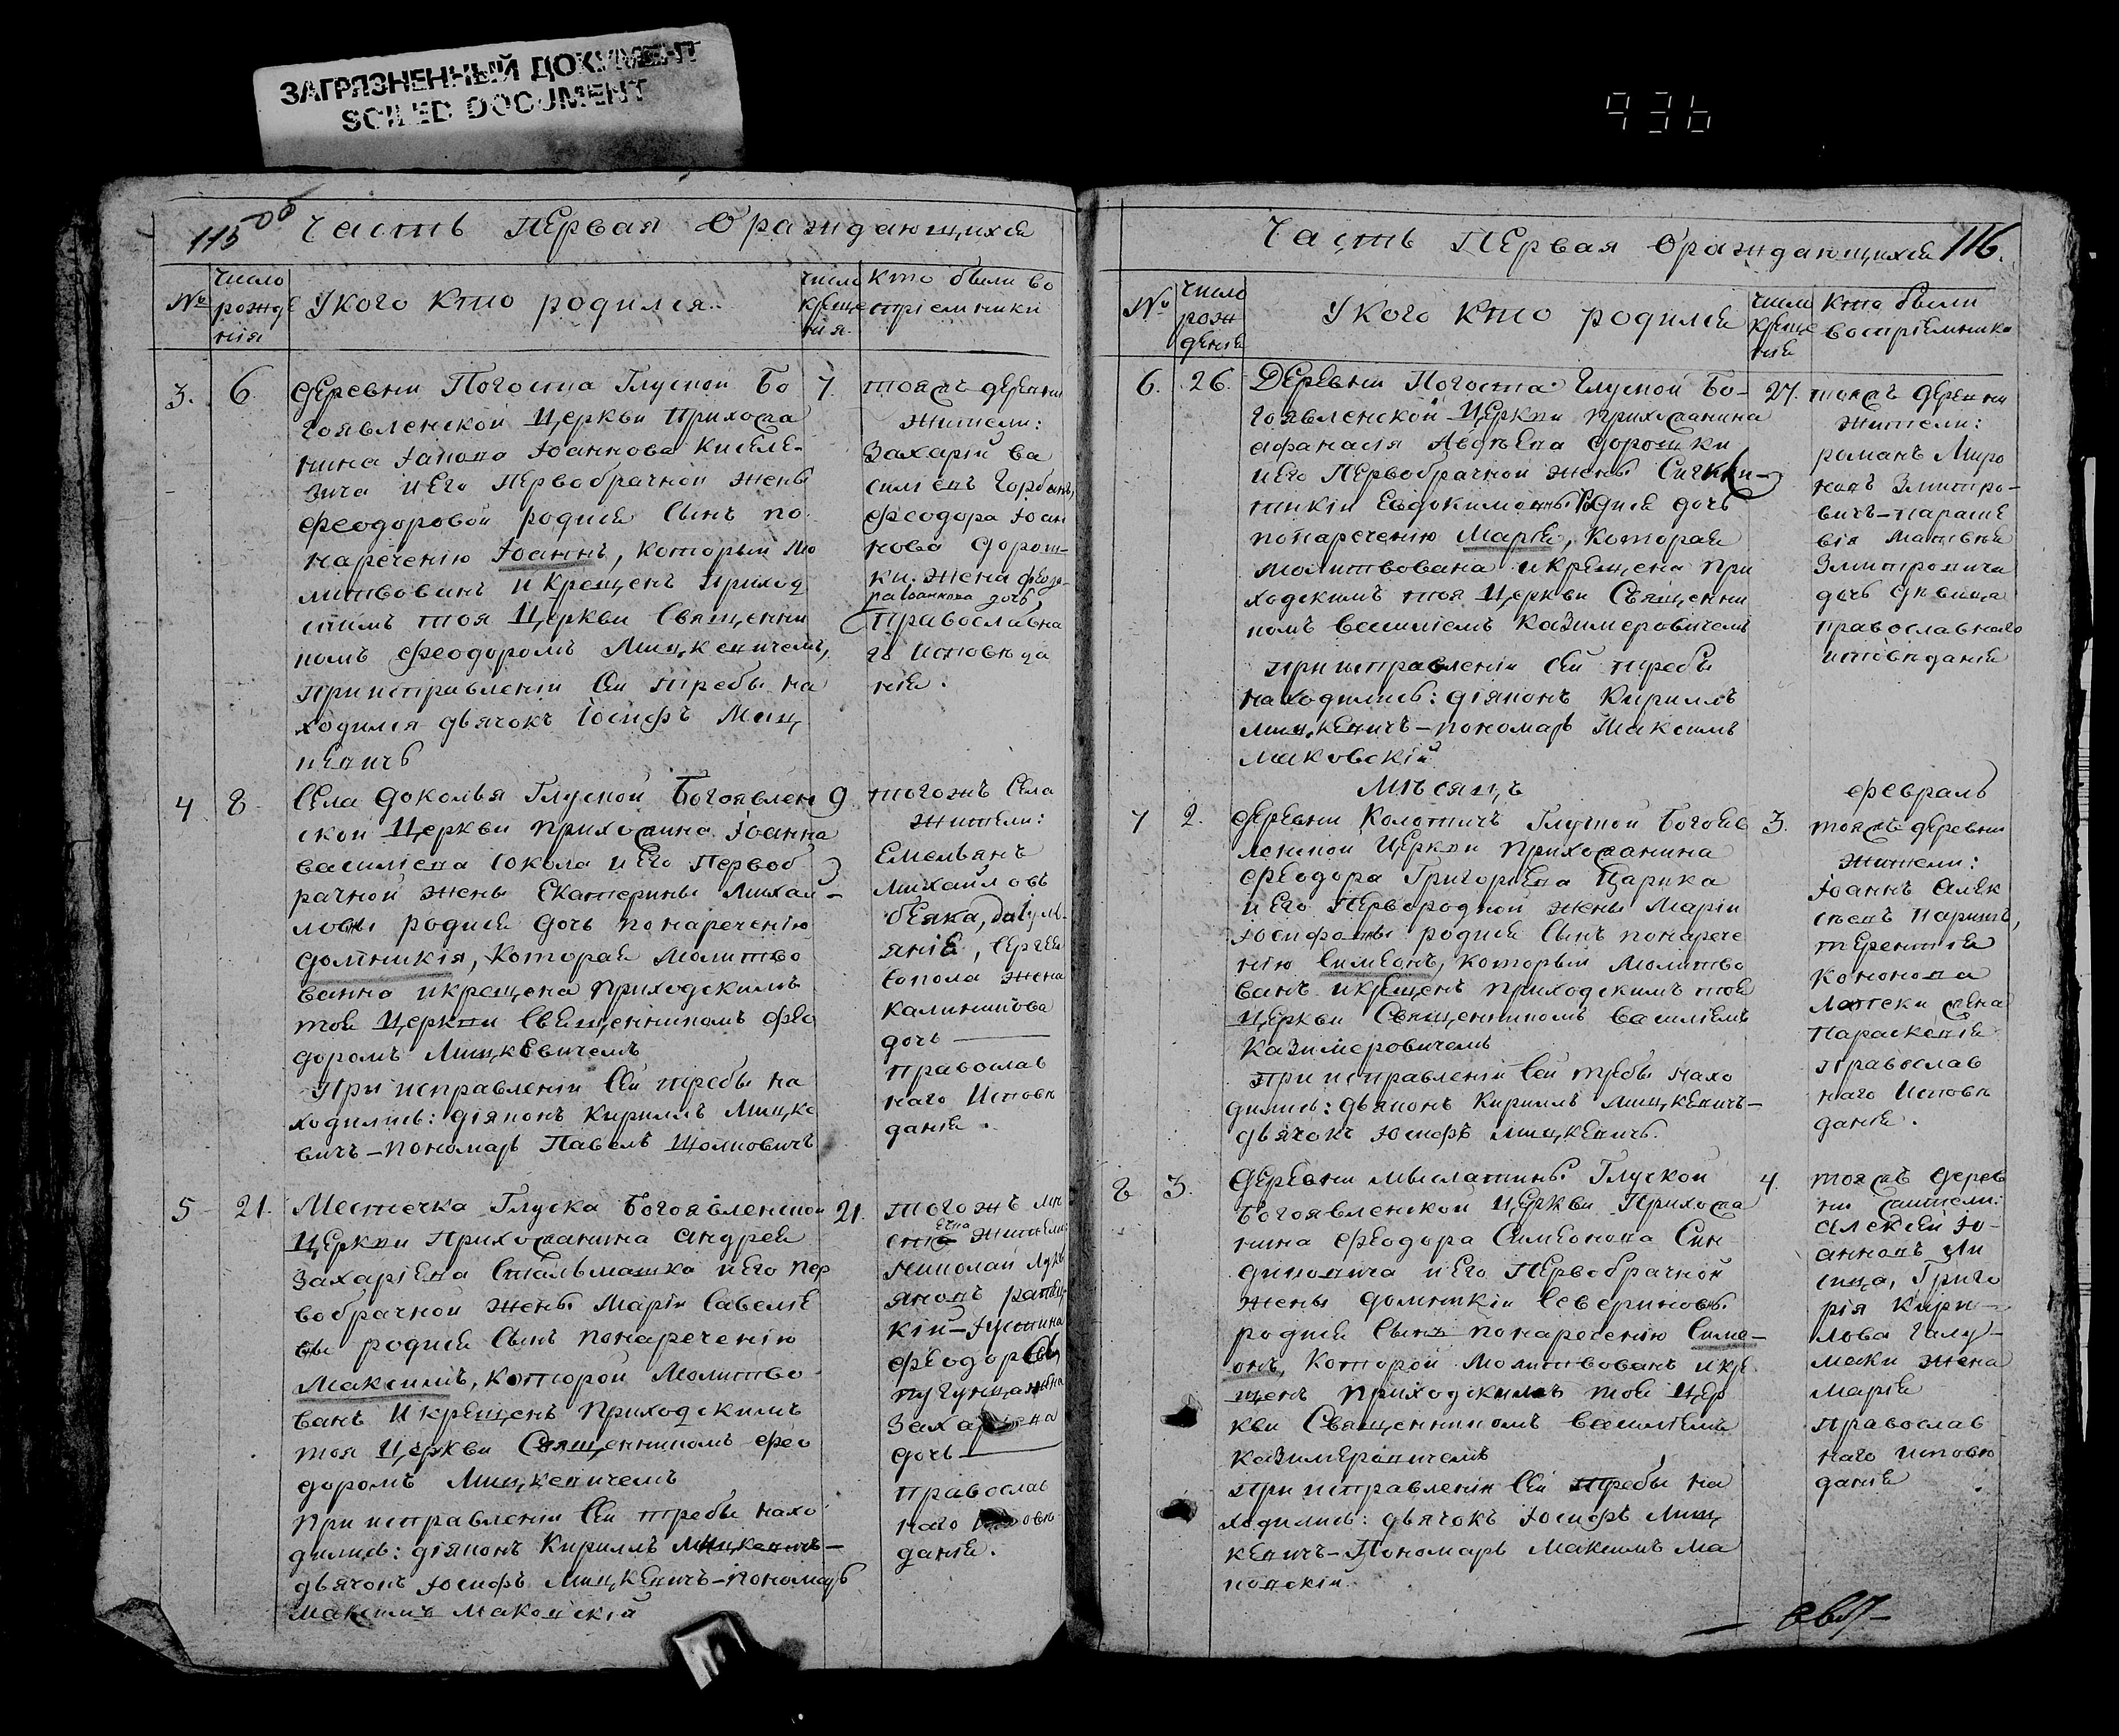 ЗАГРЯЗНЕННЫЙ ДОКУМЕНТ
SOILED DOCUMENT
936
115 об
Часть Первая О раждающихся
№
число рожденія
У кого кто родился
число крещенія
кто были воспріемники
3.
6.
деревни Погоста Глуской Бо
гоявленской Церкви Прихожа
нина Іакова Іоаннова Киселе-
вича и его Первобрачной жены
Феодоровой родися Сынъ по
нареченію Іоаннъ, который мо
литвованъ и крещенъ приход
скимъ тоя Церкви Священни
комъ Феодоромъ Мицкевичемъ,
При исправленіи сей требы на
ходился дьячокъ Іосифъ Миц
кевичъ
7.
тояжъ деревни
жители:
Захарій Ва
силіевъ Горбачъ,
Феодора Іоан
нова Дорош-
ки жена
дочь
Православна
го исповѣда
нія.
4
8
Села Доколья Глуской Богоявлен
ской Церкви прихожанина Іоанна
Василіева Сокола и его Первоб
рачной жены Екатерины Михай-
ловы родися дочь по нареченію
Домникія, которая молитво
ванна и крещена приходскимъ
тоя Церкви Священникомъ Фео
доромъ Мицкевичемъ
При исправленіи сей требы на
ходились: діяконъ Кириллъ Мицке
вичъ-пономарь Павелъ
9
тогожъ Села
жители:
Емельянъ
Михайловъ
Сергея
Сокола жена
Калиникова
дочь
Православ
наго Исповѣ
данія.
5
21.
Местечка Глуска Богоявленской
Церкви Прихожанина Андрея
Захаріева Стальмашка и его пер
вобрачной жены Маріи Савелье
вы родися Сынъ по нареченію
Максимъ, которой Молитво
ванъ и крещенъ Приходскимъ
тоя Церкви Священникомъ Фео
доромъ Мицкевичемъ
При исправленіи сей требы нахо
дились: діяконъ Кириллъ Мицкевичъ-
дьячокъ Іосифъ Мицкевичъ-пономарь
Максимъ Маковскій
21.
тогожъ мѣ
стечка жители:
Николай Лукь
яновъ
Іустина
Феодорова
жена
Захаріева
дочь
православ
наго исповѣ
данія.
116.
Часть Первая О раждающихся
№
число рожденія
У кого кто родился
число крещенія
кто были воспріемники
6.
26.
Деревни Погоста Глуской Бо-
гоявленской Церкви прихожанина
Афанасія Авдѣева Дорошки
и его Первобрачной жены
Евдокимовны родися дочь
по нареченію Марія, которая
молитвована и крещена при
ходскимъ тоя Церкви Священни
комъ Василіемъ Казимеровичемъ
При исправленіи сей требы
находились: діяконъ Кириллъ
Мицкевичъ-пономарь Максимъ
Маковскій
27.
тояжъ деревни
жители:
романъ Миро
новъ Змитро-
вичъ-параске
вія Матвѣя
Змитровича
дочь дѣвица
православнаго
исповѣданія
Мѣсяцъ
февраль
7
2.
деревни Колотичъ Глуской Богояв
ленской Церкви Прихожанина
Феодора Григоріева Царика
и его Первородной жены Маріи
Іосифовны родися Сынъ по нарече
нію Симеонъ, который молитво
ванъ и крещенъ приходскимъ тоя
Церкви Священникомъ Василіемъ
Казимеровичемъ
При исправленіи сей требы нахо
дились: дьяконъ Кириллъ Мицкевичъ-
дьячокъ Іосифъ Мицкевичъ.
3.
тояжъ деревни
жители:
Іоаннъ Алек
сѣевъ
терентія
Кононова
жена
Параскевія
Православ
наго Исповѣ
данія.
8
3.
Деревни Мыслотины Глуской
Богоявленской Церкви Прихожа
нина Феодора Симеонова Син
диковича и его Первобрачной
жены Домникіи Севериновы
родися Сынъ по нареченію Симе-
онъ, которой молитвованъ и кре
щенъ приходскимъ тоя Цер
кви Священникомъ Василіемъ
Казимеровичемъ
При исправленіи сей требы на
ходились: дьячокъ Іосифъ Миц
кевичъ-Пономарь Максимъ Ма
ковскій.
4.
тояжъ дерев
ни жители:
Алексѣй Іо-
анновъ Ли
сица, Григо
рія Кири-
лова Галу-
шки жена
Марія
Православ
наго исповѣ
данія